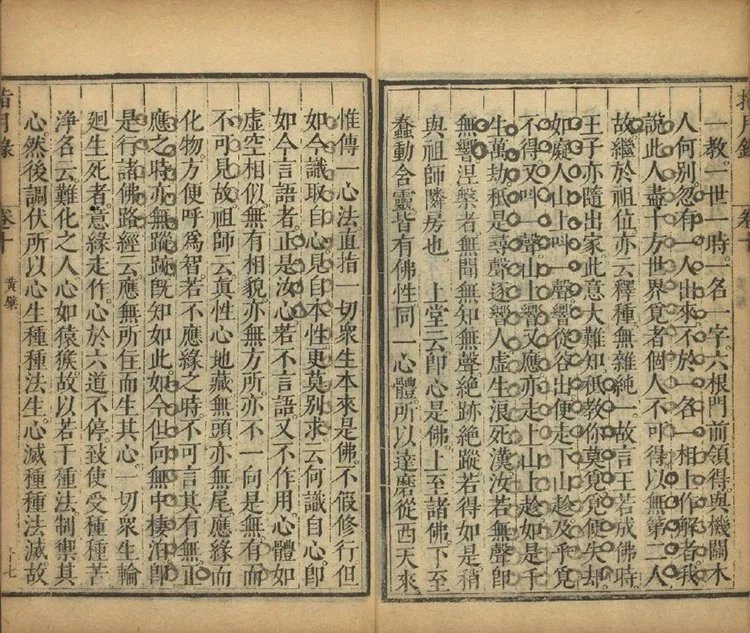 指月錄 卷十
一教一世一時。一名一字。六根門前領得與機關木
人何別。忽有一人出來。不於一名一相上作解者。我
說此人盡十方世界覓者個人不可得。以無第二人
故。繼於祖位。亦云釋種無雜純一。故言王若成佛時。
王子亦隨出家。此意大難知。秖教你莫覓。覓便失却。
如癡人山上叫一聲。響從谷出。便走下山趁。及乎覓
不得。又叫一聲。山上響又應。亦走上山上趁。如是千
生萬劫。秖是尋聲逐響人。虛生浪死漢。汝若無聲即
無響。涅槃者無聞無知無聲。絕跡絕蹤。若得如是。稍
與祖師隣房也　上堂云。即心是佛。上至諸佛。下至
蠢動含靈。皆有佛性。同一心體。所以達磨從西天來
惟傳一心法。直指一切眾生本來是佛。不假修行。但
如今識取自心。見自本性。更莫別求。云何識自心。即
如今言語者。正是汝心。若不言語。又不作用。心體如
虛空相似。無有相貌。亦無方所。亦不一向是無。有而
不可見。故祖師云。真性心地藏。無頭亦無尾。應緣而
化物。方便呼爲智。若不應緣之時。不可言其有無。正
應之時。亦無蹤跡。既知如此。如今但向無中棲泊。即
是行諸佛路。經云。應無所住而生其心。一切眾生輪
廻生死者。意緣走作。心於六道不停。致使受種種苦
淨名云。難化之人。心如猿猴。故以若干種法。制禦其
心。然後調伏。所以心生種種法生。心滅種種法滅。故
指月錄 卷十 黃檗 十七